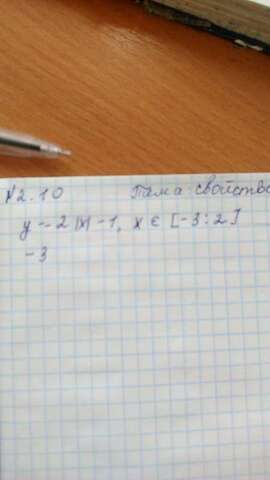 №2.10 Тема: свойство
y = -2|x|-1, x ∈ [-3; 2]
-3